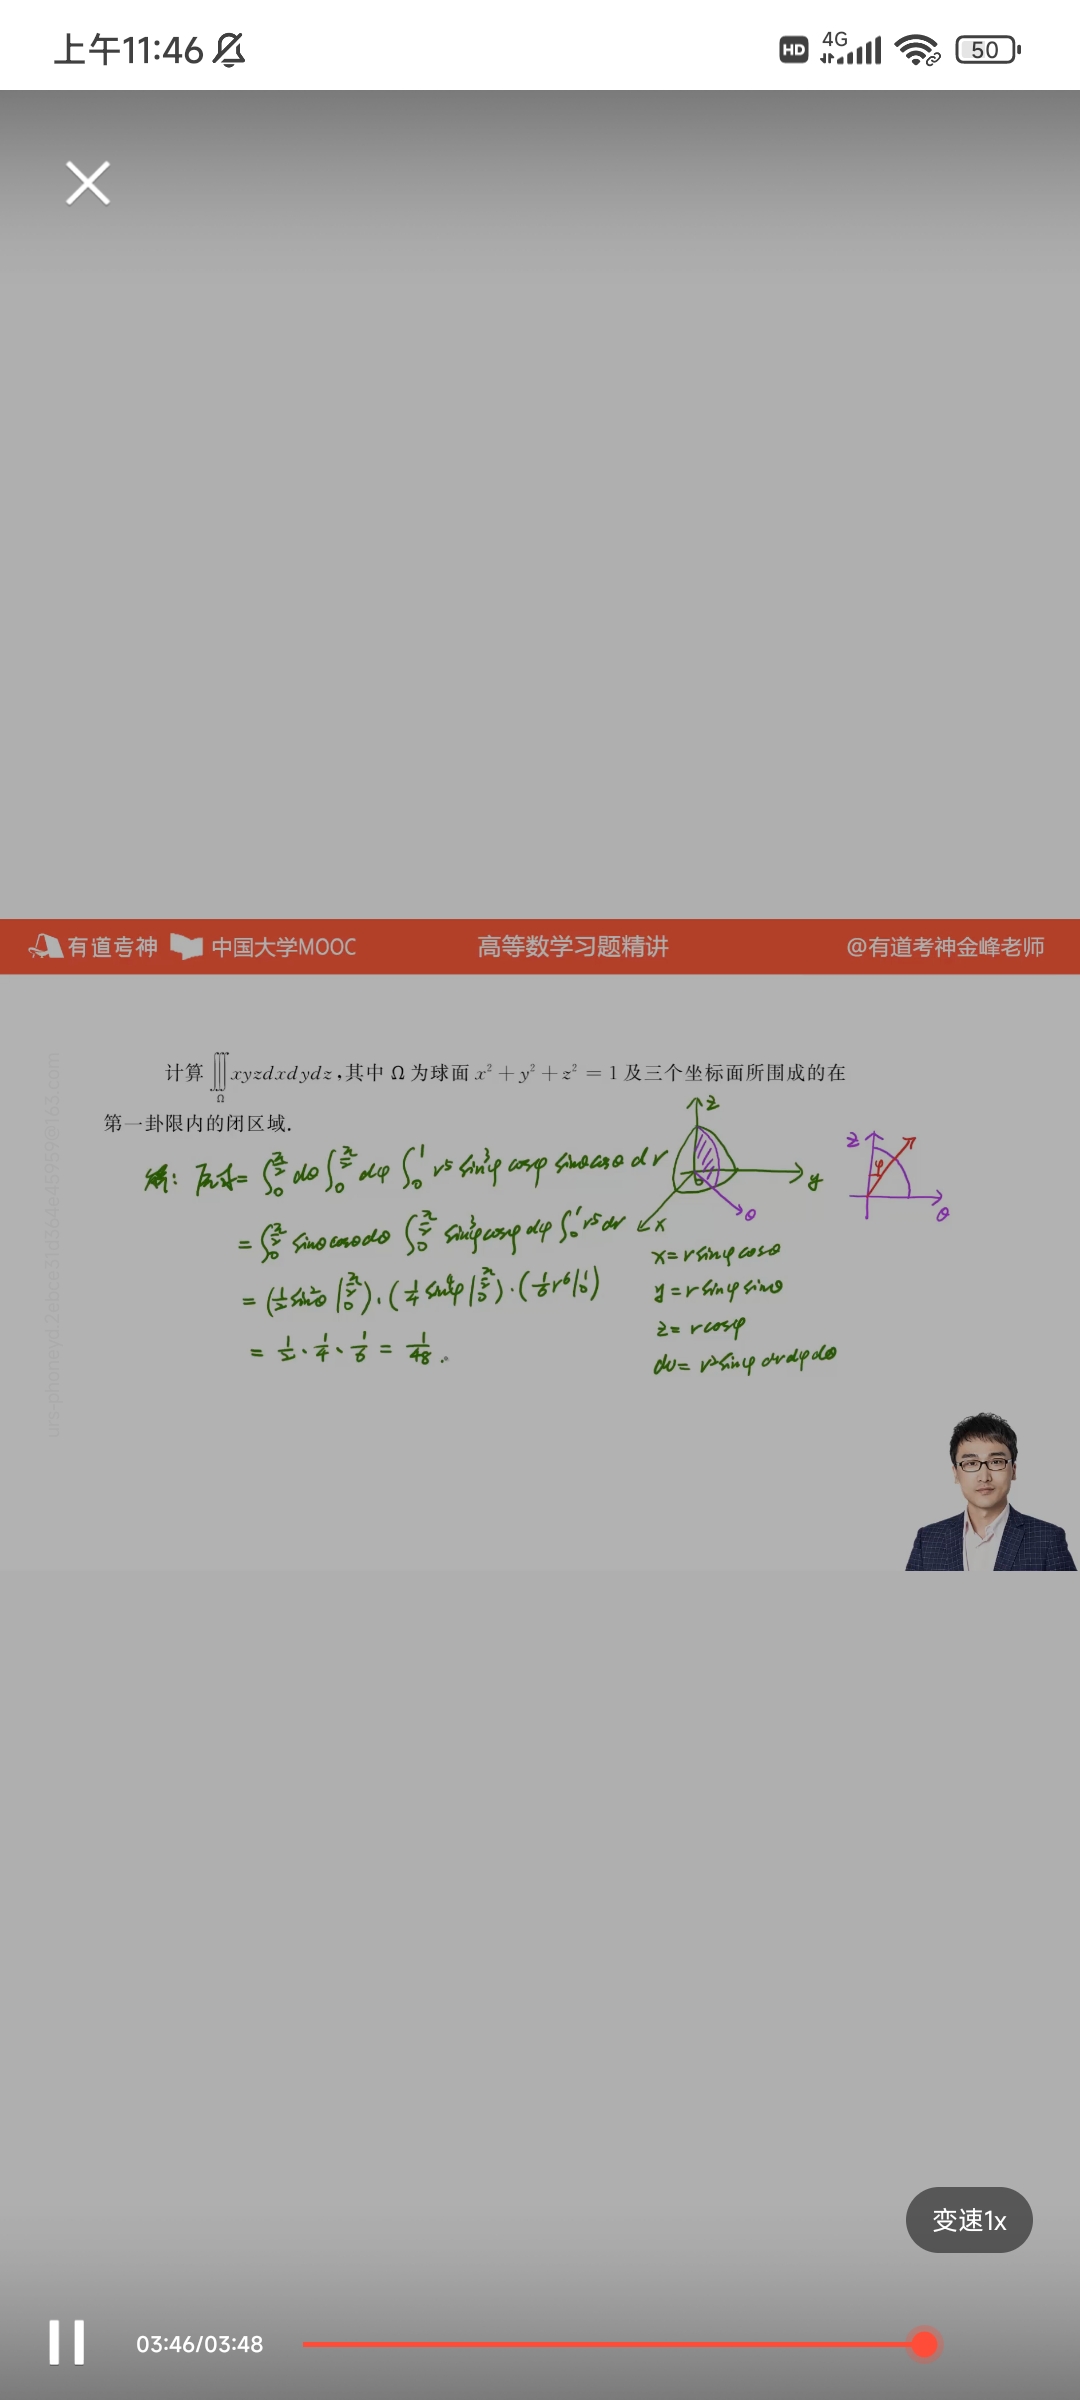 上午11:46
HD 4G 50
有道考神 中国大学MOOC 高等数学习题精讲 @有道考神金峰老师
计算 ∭_Ω xyzdxdydz,其中 Ω 为球面 x² + y² + z² = 1 及三个坐标面所围成的在
第一卦限内的闭区域.
解: 原式= ∫₀^(π/2) dθ ∫₀^(π/2) dφ ∫₀^1 r⁵ sin³φ cosφ sinθcosθ dr
= ∫₀^(π/2) sinθcosθdθ ∫₀^(π/2) sin³φcosφ dφ ∫₀^1 r⁵dr
= (1/2 sin²θ |₀^(π/2)) · (1/4 sin⁴φ |₀^(π/2)) · (1/6 r⁶ |₀^1)
= 1/2 · 1/4 · 1/6 = 1/48 .
z
y
x
θ
z
φ
θ
x= rsinφ cosθ
y= rsinφ sinθ
z= rcosφ
dv= r²sinφ drdφdθ
变速1x
03:46/03:48